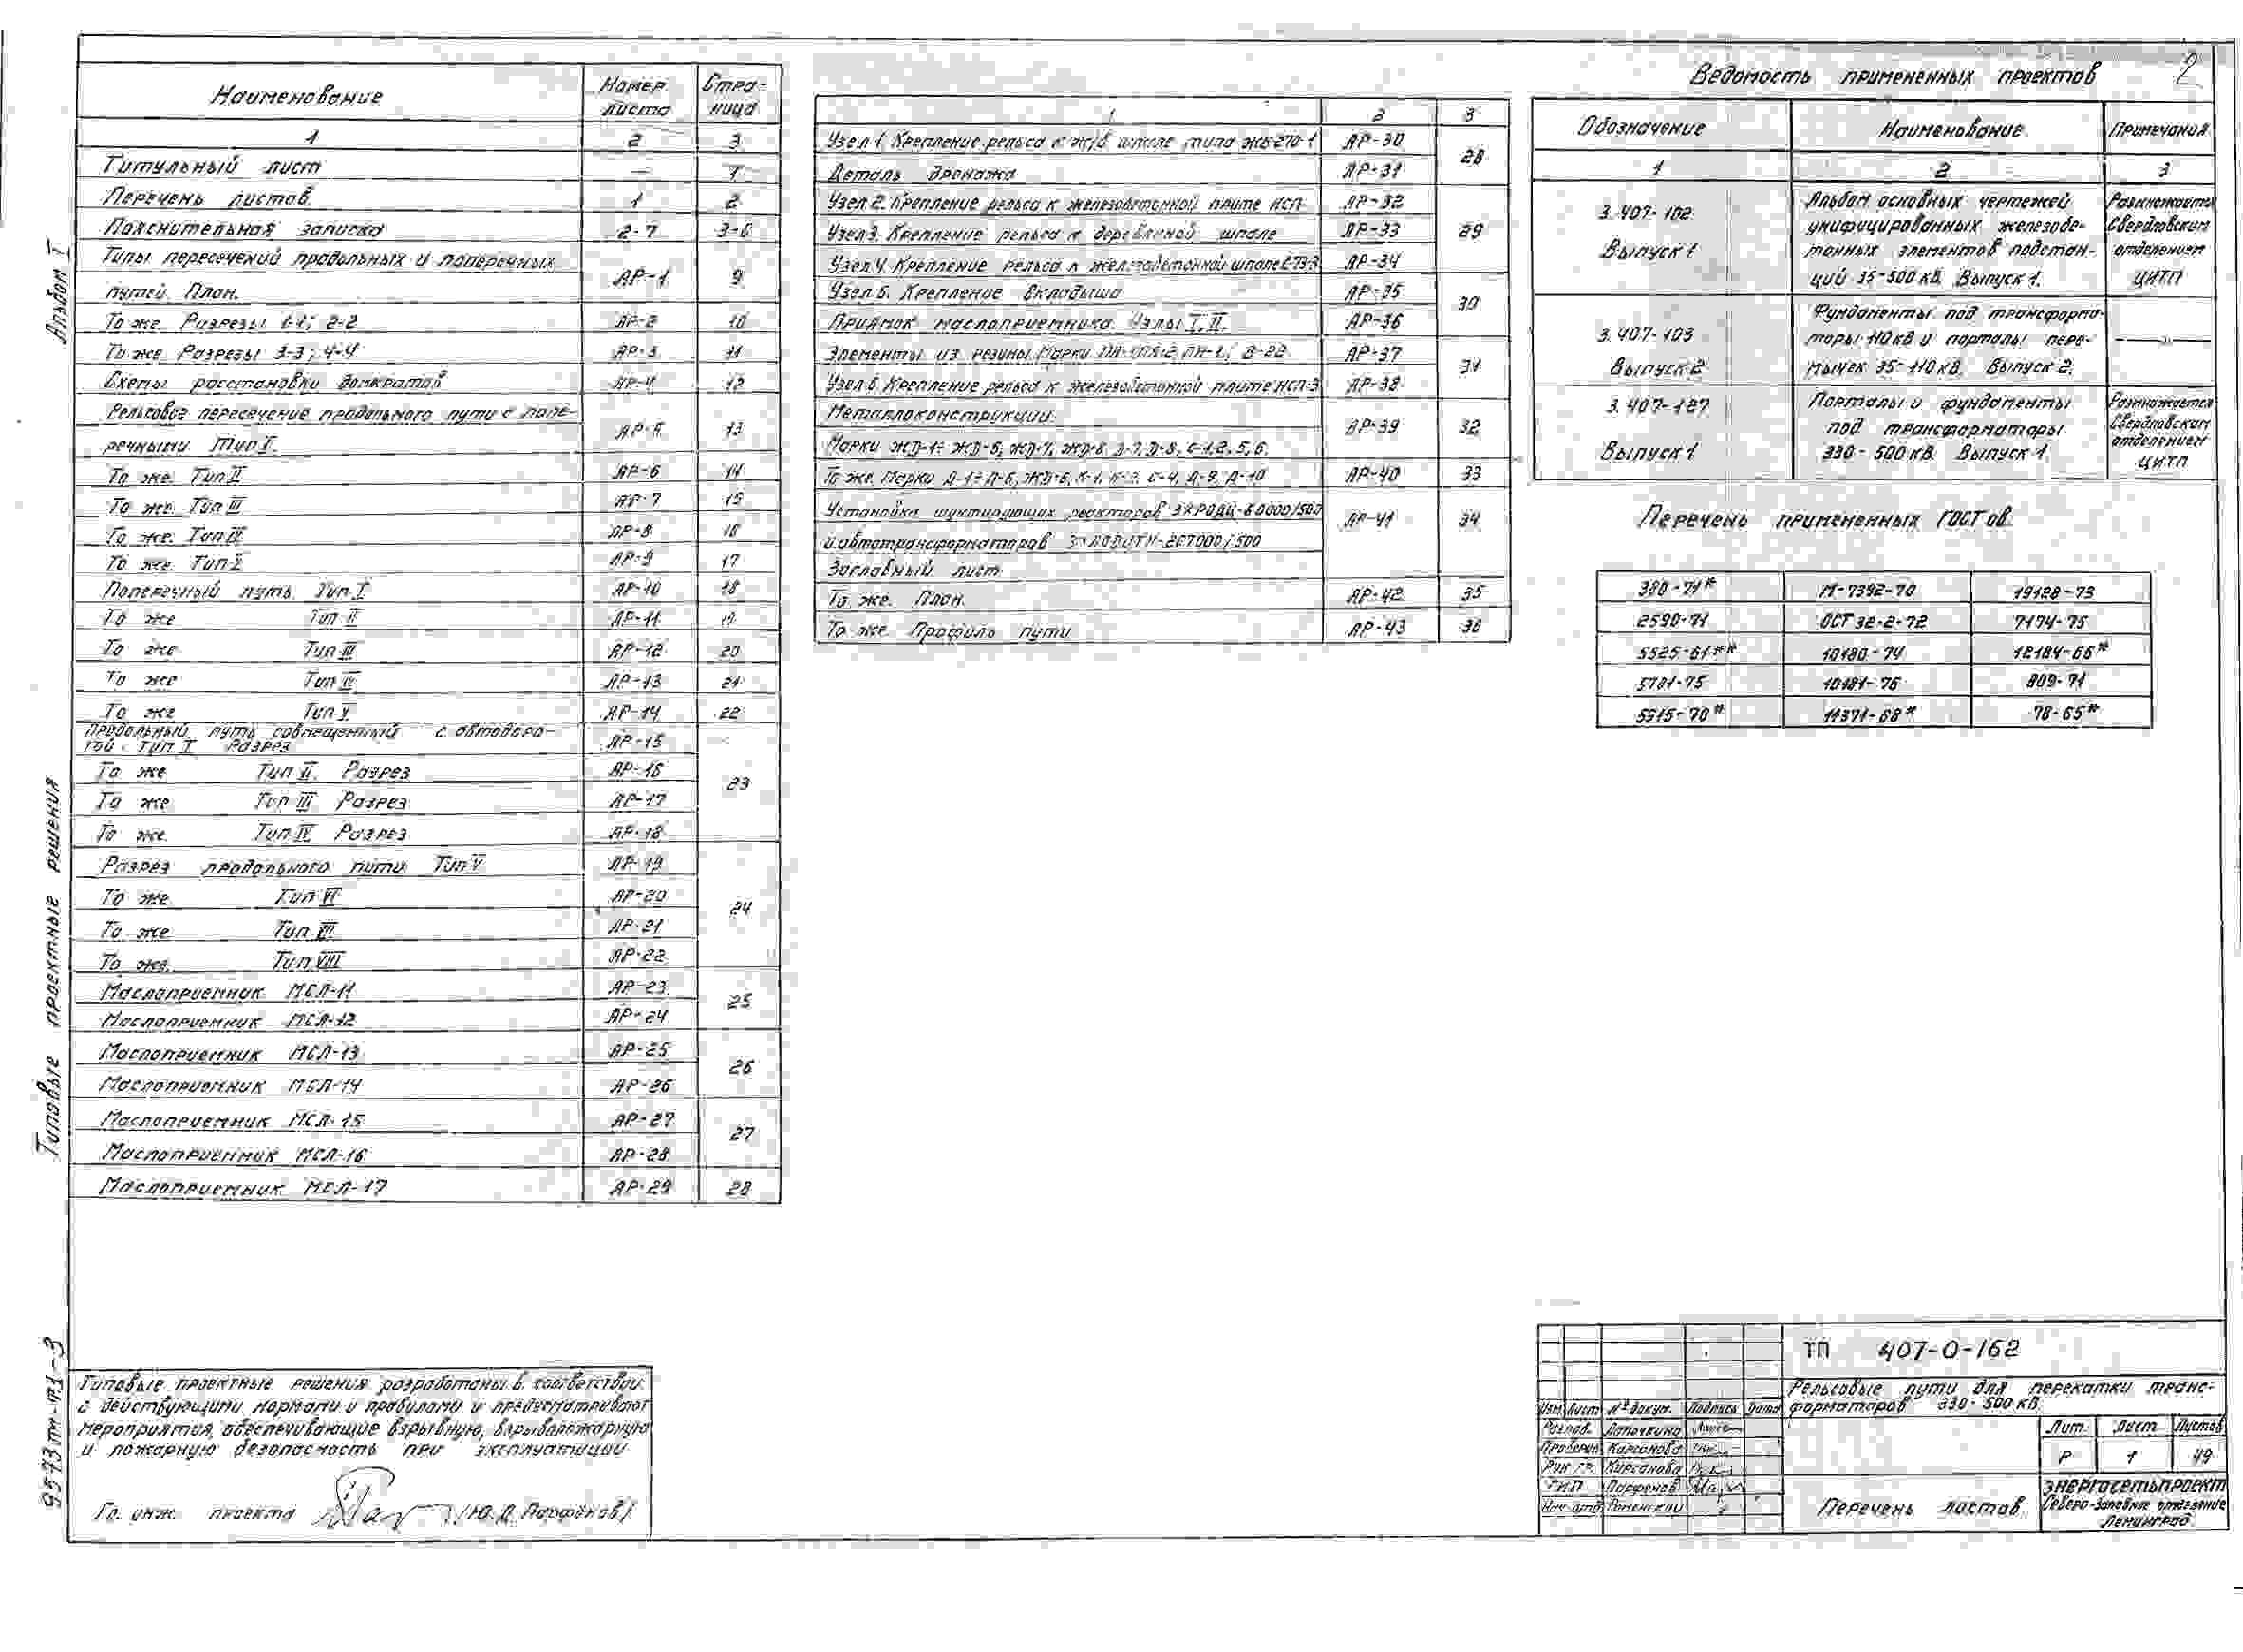 Альбом I
Типовые проектные решения
9573тм-т1-3
2
Наименование Номер листа Стра-ница
1 2 3
Титульный лист — 1
Перечень листов 1 2
Пояснительная записка 2-7 3-8
Типы пересечений продольных и поперечных
путей. План. АР-1 9
То же. Разрезы 1-1; 2-2 АР-2 10
То же. Разрезы 3-3; 4-4 АР-3 11
Схемы расстановки домкратов АР-4 12
Рельсовое пересечение продольного пути с попе-
речными Тип I. АР-5 13
То же. Тип II АР-6 14
То же. Тип III АР-7 15
То же. Тип IV АР-8 16
То же. Тип V АР-9 17
Поперечный путь. Тип I АР-10 18
То же Тип II АР-11 19
То же Тип III АР-12 20
То же Тип IV АР-13 21
То же Тип V АР-14 22
Продольный путь совмещенный с автодоро-
гой. Тип I Разрез АР-15
То же Тип II. Разрез АР-16 23
То же Тип III Разрез АР-17
То же Тип IV Разрез АР-18
Разрез продольного пути. Тип V АР-19
То же Тип VI АР-20 24
То же Тип VII АР-21
То же. Тип VIII АР-22
Маслоприемник МСЛ-11 АР-23 25
Маслоприемник МСЛ-12 АР-24
Маслоприемник МСЛ-13 АР-25 26
Маслоприемник МСЛ-14 АР-26
Маслоприемник МСЛ-15 АР-27 27
Маслоприемник МСЛ-16 АР-28
Маслоприемник МСЛ-17 АР-29 28
1 2 3
Узел 1. Крепление рельса к ж/б шпале типа ЖБ-270-1 АР-30 28
Деталь дренажа АР-31
Узел 2. Крепление рельса к железобетонной плите НСП АР-32
Узел 3. Крепление рельса к деревянной шпале АР-33 29
Узел 4. Крепление рельса к железобетонной шпале АР-34
Узел 5. Крепление вкладыша АР-35 30
Приямок маслоприемника. Узлы I, II. АР-36
Элементы из резины. Марки АР-37 31
Узел 6. Крепление рельса к железобетонной плите НСП-3 АР-38
Металлоконструкции.
Марки АР-39 32
То же. Марки АР-40 33
Установка шунтирующих реакторов
и автотрансформаторов АР-41 34
Заглавный лист
То же. План. АР-42 35
То же. Профиль пути АР-43 36
Ведомость примененных проектов
Обозначение Наименование Примечания
1 2 3
3.407-102 Выпуск 1
Альбом основных чертежей
унифицированных железобе-
тонных элементов подстан-
ций 35-500 кВ. Выпуск 1.
Размножается
Свердловским
отделением
ЦИТП
3.407-103 Выпуск 2
Фундаменты под трансформа-
торы 110 кВ и порталы пере-
мычек 35-110 кВ. Выпуск 2.
—"—
3.407-127 Выпуск 1
Порталы и фундаменты
под трансформаторы
330-500 кВ. Выпуск 1
Размножается
Свердловским
отделением
ЦИТП
Перечень примененных ГОСТов.
380-71* М-7392-70 19128-73
2590-71 ОСТ 32-2-72 7174-75
5525-61** 10180-74 12184-66*
5781-75 10181-76 809-71
5915-70* 11371-68* 78-65*
Типовые проектные решения разработаны в соответствии
с действующими нормами и правилами и предусматривают
мероприятия, обеспечивающие взрывную, взрывопожарную
и пожарную безопасность при эксплуатации
Гл. инж. проекта /Ю. Д. Парфенов/
ТП 407-0-162
Рельсовые пути для перекатки транс-
форматоров 330-500 кВ
Изм. Лист № докум. Подпись Дата
Разраб. Лапочкина
Проверил Кирсанова
Рук. гр. Кирсанова
ГИП Парфенов
Нач. отд. Роменский
Лит. Лист Листов
Р 1 49
Перечень листов
ЭНЕРГОСЕТЬПРОЕКТ
Северо-Западное отделение
Ленинград